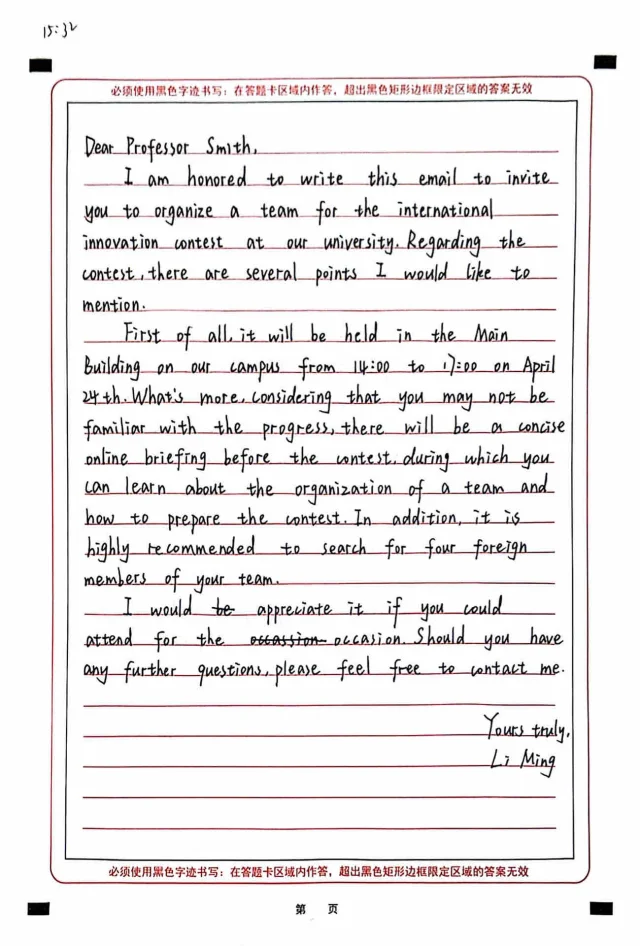 15:32
必须使用黑色字迹书写：在答题卡区域内作答，超出黑色矩形边框限定区域的答案无效
Dear Professor Smith,
I am honored to write this email to invite
you to organize a team for the international
innovation contest at our university. Regarding the
contest, there are several points I would like to
mention.
First of all, it will be held in the Main
Building on our campus from 14:00 to 17:00 on April
24th. What's more, considering that you may not be
familiar with the progress, there will be a concise
online briefing before the contest, during which you
can learn about the organization of a team and
how to prepare the contest. In addition, it is
highly recommended to search for four foreign
members of your team.
I would be appreciate it if you could
attend for the occassion occasion. Should you have
any further questions, please feel free to contact me.
Yours truly,
Li Ming
必须使用黑色字迹书写：在答题卡区域内作答，超出黑色矩形边框限定区域的答案无效
第 页